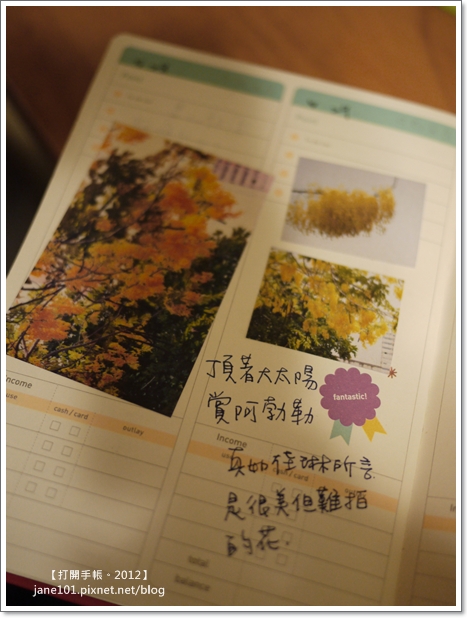 頂著大太陽
賞阿勃勒
fantastic!
真如佳琳所言
是很美但難拍
的花.
Income
cash / card
outlay
Income
total
balance
【打開手帳。2012】
jane101.pixnet.net/blog